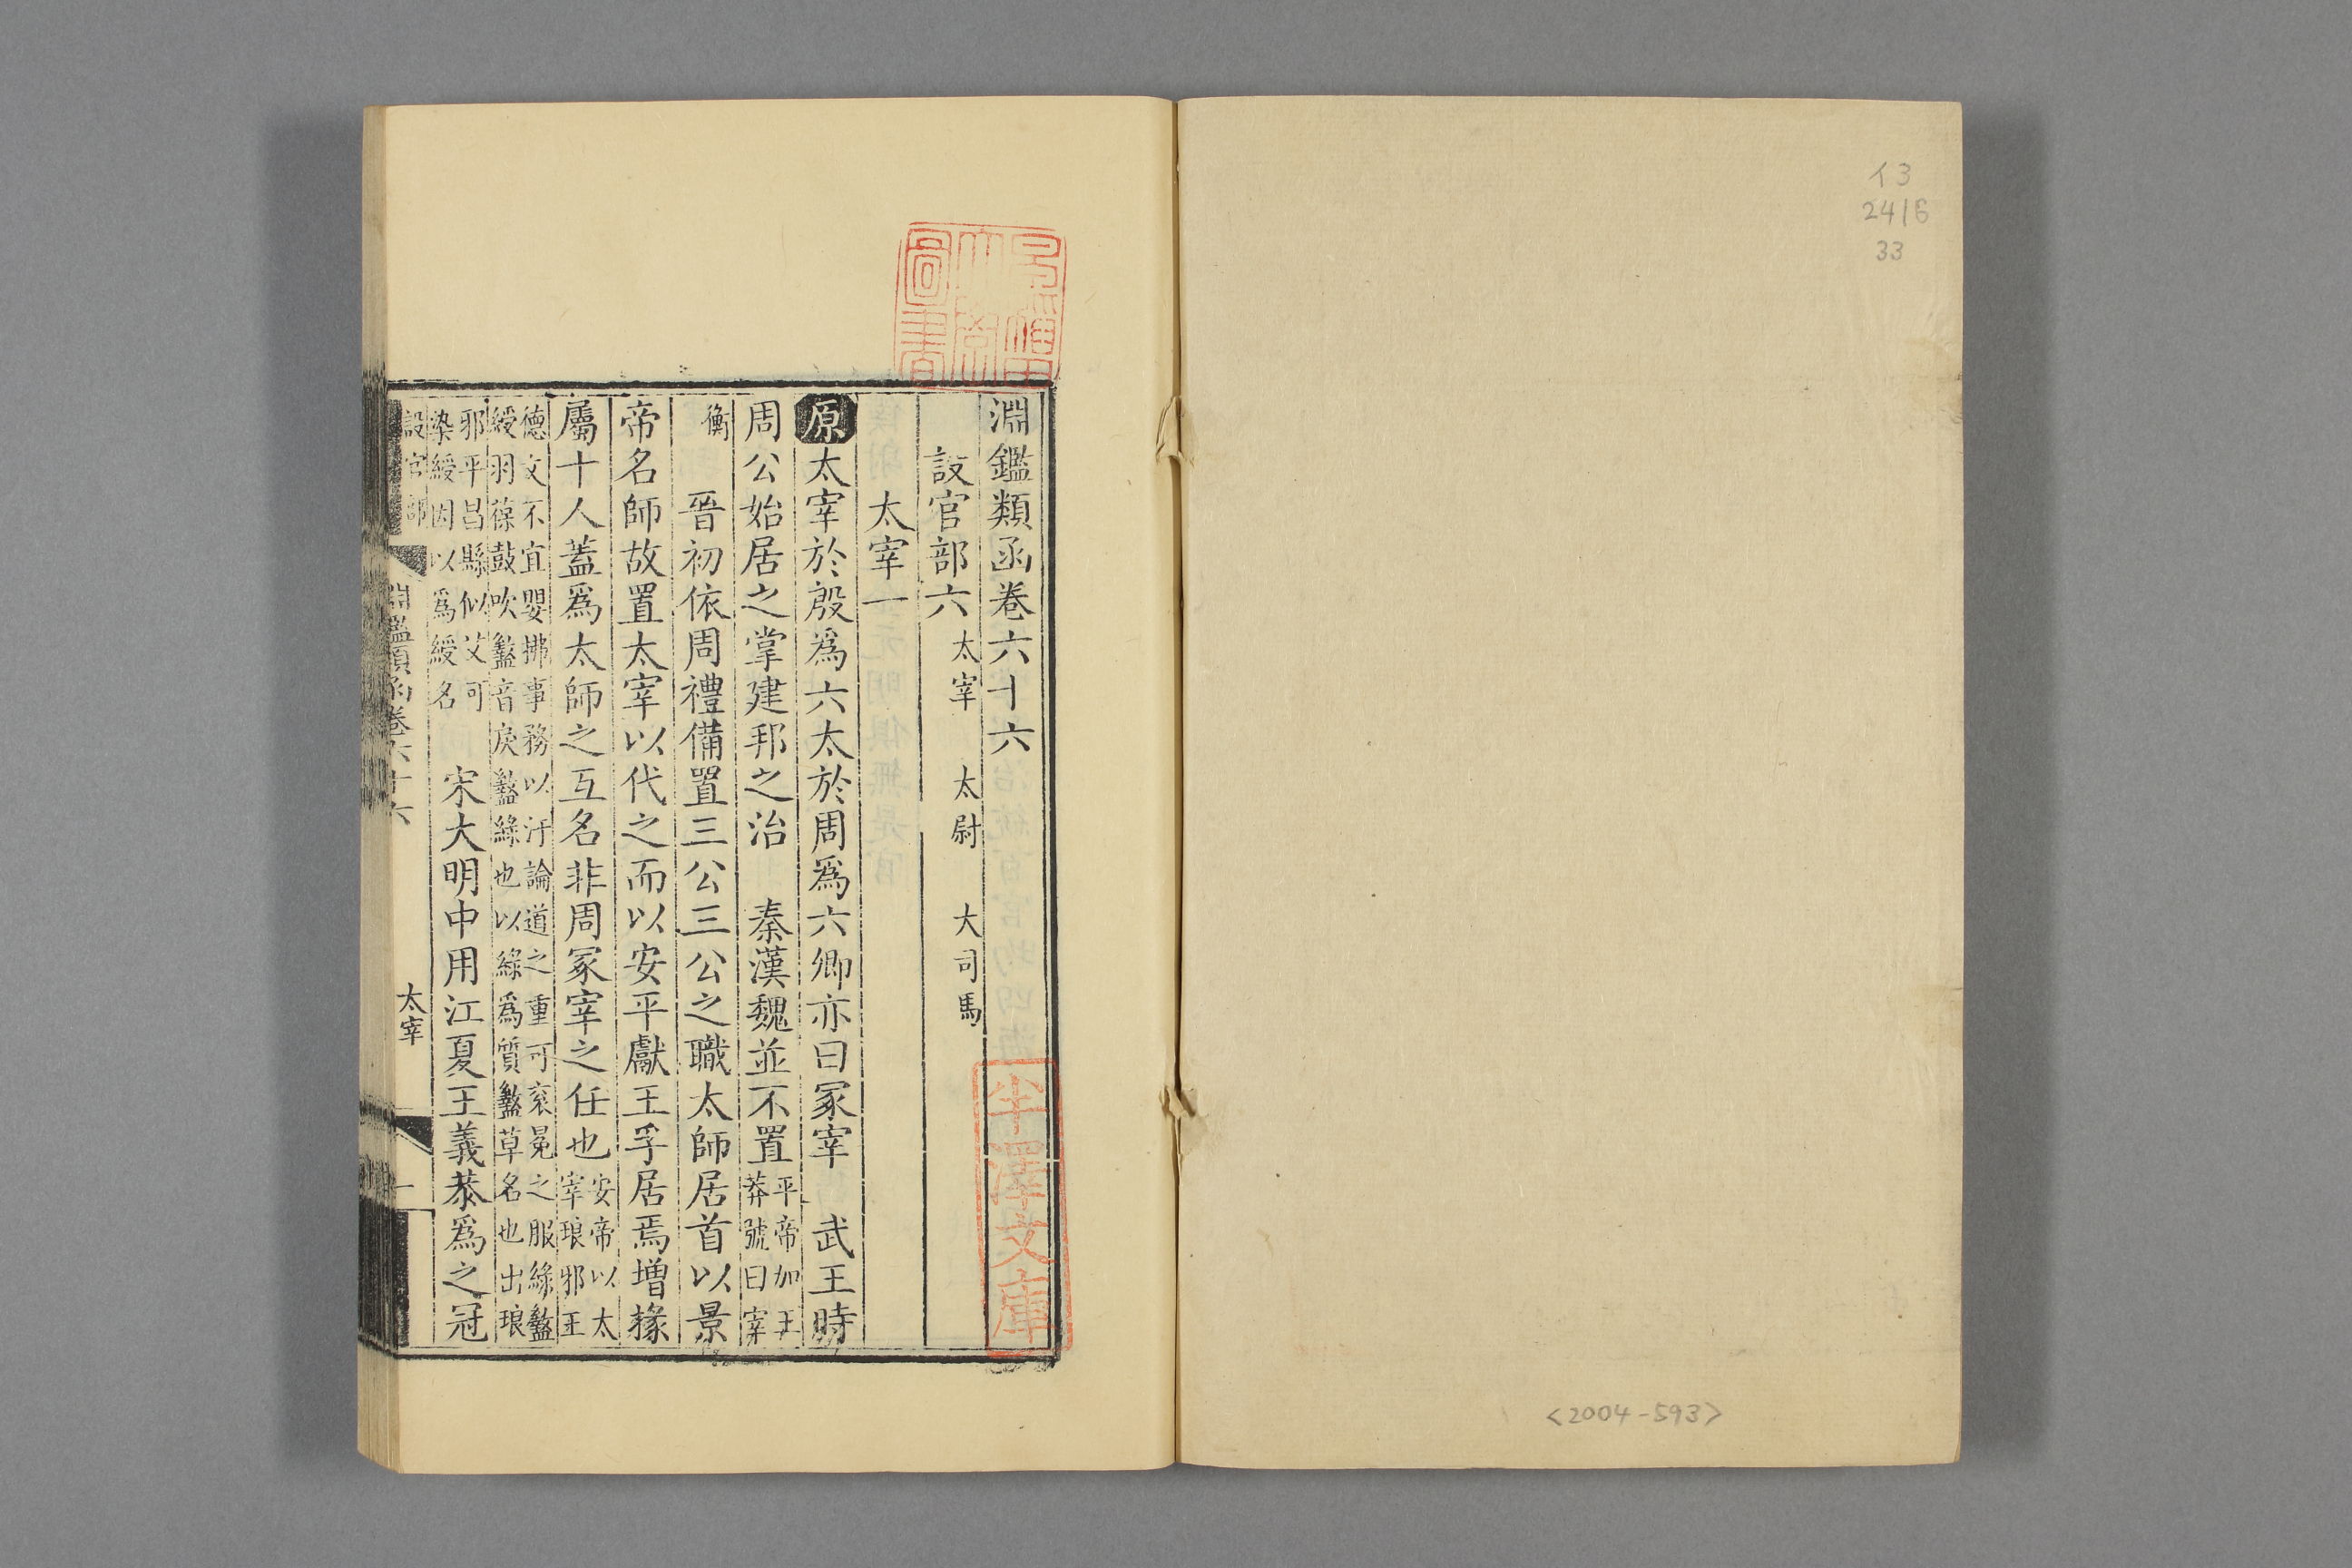 イ3
2416
33
<2004-593>
淵鑑類函卷六十六
設官部六 太宰 太尉 大司馬
太宰一
原太宰於殷爲六太於周爲六卿亦曰冢宰 武王時
周公始居之掌建邦之治 秦漢魏並不置平帝加王莽號曰宰
衡 晉初依周禮備置三公三公之職太師居首以景
帝名師故置太宰以代之而以安平獻王孚居焉增掾
屬十人蓋爲太師之互名非周冢宰之任也安帝以太宰琅邪王
德文不宜嬰拂事務以汙論道之重可衮冕之服綠盭
綬羽葆鼓吹盭音戾盭綠也以綠爲質盭草名也出琅
邪平昌縣似艾可
染綬因以爲綬名 宋大明中用江夏王義恭爲之冠
設官部 淵鑑類函卷六十六 太宰 一
圖書
半澤文庫